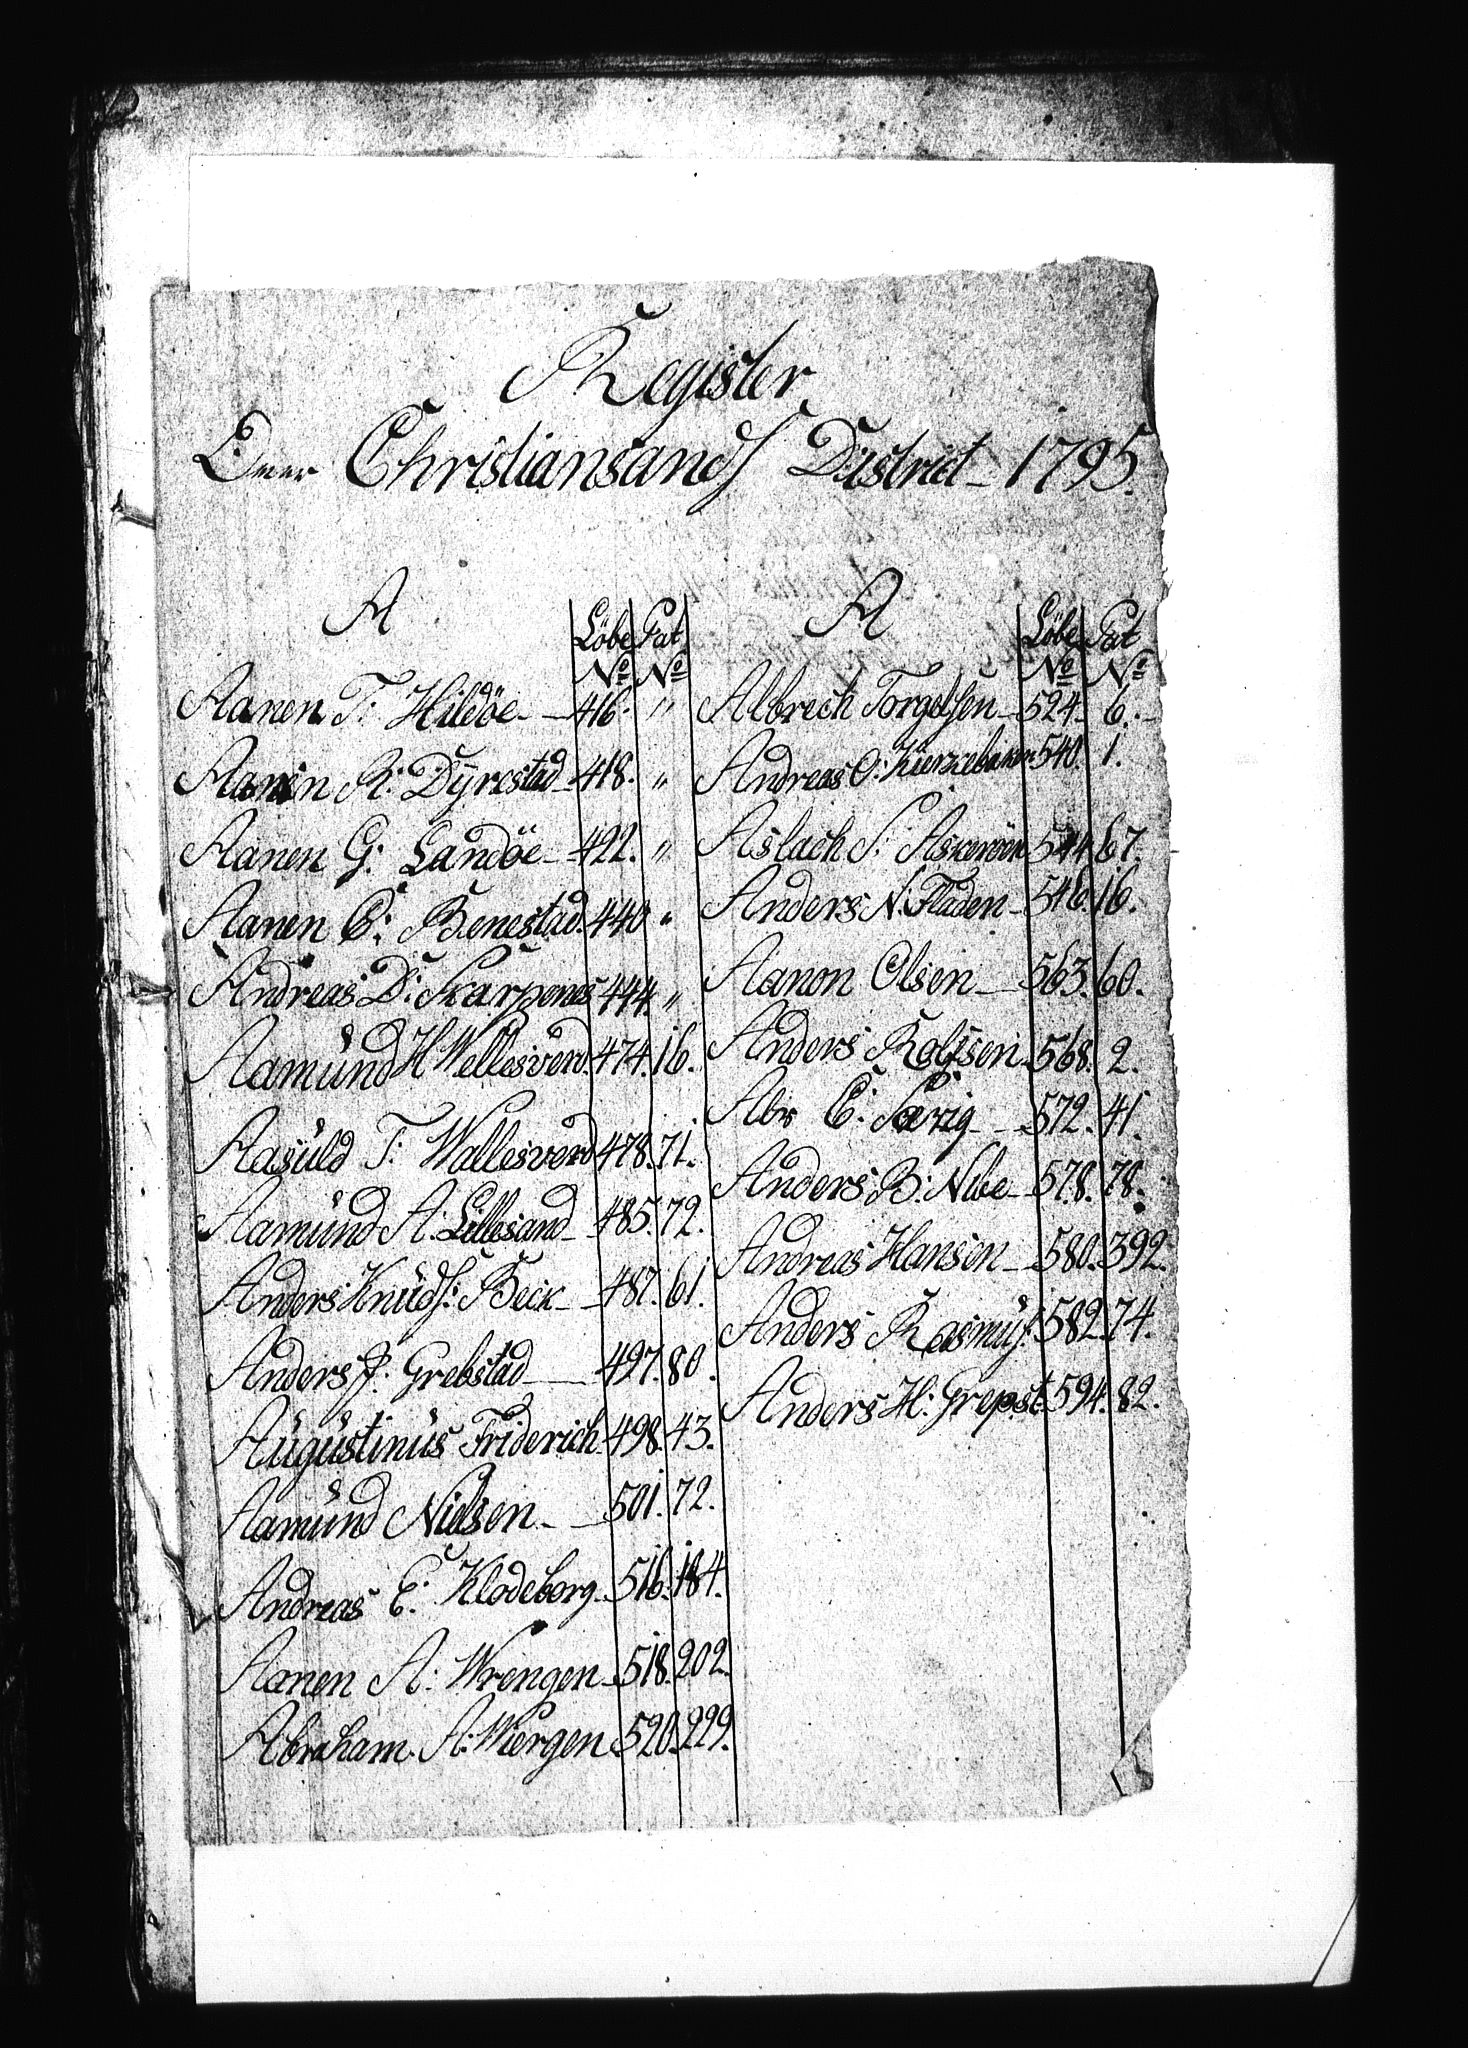 Register
Over Christiansands District 1795.
A
Löbe Pat
No No
Aanen T: Hildöe 416. "
Aanen R: Dÿrestad 418. "
Aanen G: Landöe 422. "
Aanen C: Benestad. 440 "
Andreas D: Skarpenes 444. "
Aamünd H Wellesverd. 474. 16.
Aasüld T: Wallesverd 478. 71.
Aamünd A: Lillesand 485. 72.
Anders Knüds: Beck 487. 61.
Anders J: Grebstad 497. 80.
Aügüstinüs Friderich 498. 43.
Aamünd Nielsen 501. 72.
Andreas E: Klodeborg 516. 184.
Aanen A: Wrengen 518. 202.
Abraham A: Wiergen 520. 229.
A
Löbe Pat
No No
Albrech Torgelsen 524. 6.
Andreas O: 540. 1.
Aslach S: Askeröen 544. 67.
Anders N: Fladen 546. 16.
Aanon Olsen 563. 60.
Anders Rolfsen 568. 2.
Abr E: Særig 572. 41.
Anders B: Nibe 578. 78.
Andreas Hansen 580. 392.
Anders Rasmüs: 582. 74.
Anders H: Grepst: 594. 82.